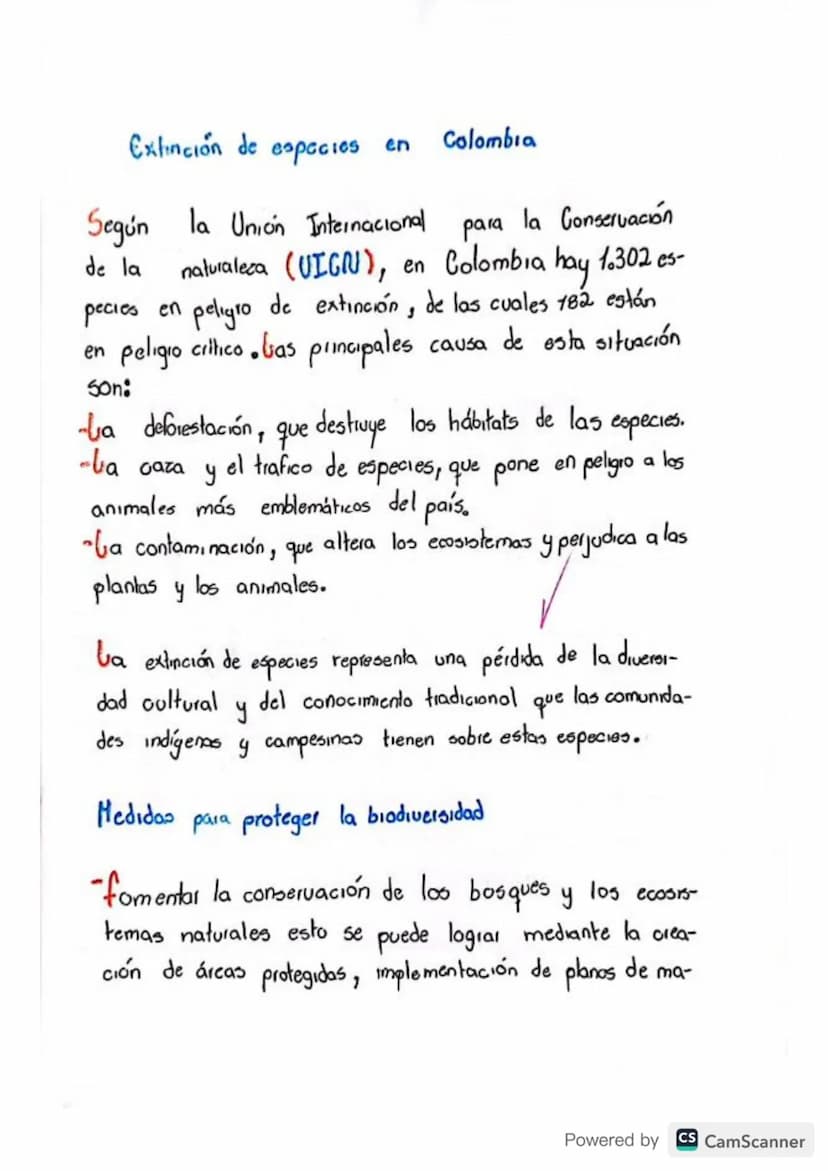 Extinción de especies en Colombia
Según la Unión Internacional para la Conservación
de la naturaleza (UICN), en Colombia hay 1.302 es-
pecies en peligro de extinción, de las cuales 182 están
en peligro crítico. Las principales causa de esta situación
son:
-La deforestación, que destruye los hábitats de las especies.
-La caza y el trafico de especies, que pone en peligro a los
animales más emblemáticos del país.
-La contaminación, que altera los ecosistemas y perjudica a las
plantas y los animales.
La extinción de especies representa una pérdida de la diversi-
dad cultural y del conocimiento tradicional que las comunida-
des indígenas y campesinas tienen sobre estas especies.
Medidas para proteger la biodiversidad
-fomentar la conservación de los bosques y los ecosis-
temas naturales esto se puede lograr mediante la crea-
ción de áreas protegidas, implementación de planos de ma-
Powered by CS CamScanner